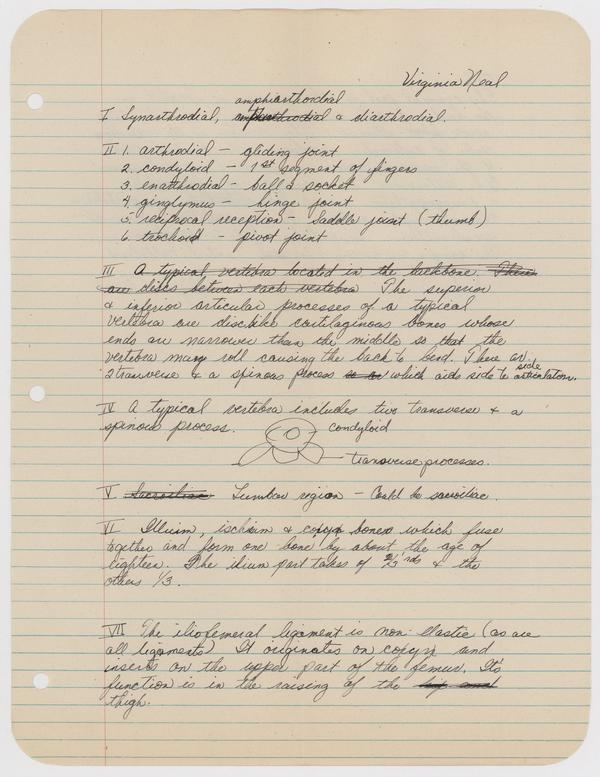 Virginia Neal
amphiarthordial
I Synarthrodial, amphiarthrodial & diarthrodial.
II 1. arthrodial - gliding joint
2. condyloid - 1st segment of fingers
3. enarthrodial - ball & socket
4. ginglymus - hinge joint
5. reciprocal reception - Saddle joint (thumb)
6. trochoid - pivot joint
III A typical vertebra located in the backbone. There
are discs between each vertebra The superior
& inferior articular processes of a typical
vertebra are disclike cartilaginous bones whose
ends are narrower than the middle so that the
vertebra may roll causing the back to bend. There are
side
2 transverse & a spinous process which aids side to articulation.
IV A typical vertebra includes two transverse & a
spinous process.
condyloid
transverse processes.
V Sacroiliac Lumbar region - Could be sacroiliac.
VI Illium, ischium & coxyx bones which fuse
together and form one bone by about the age of
eighteen. The ilium part takes of 2/3 rds & the
others 1/3.
VII The iliofemeral ligament is non-elastic (as are
all ligaments) It originates on coxyx and
inserts on the upper part of the femur. Its
function is in the raising of the leg and
thigh.